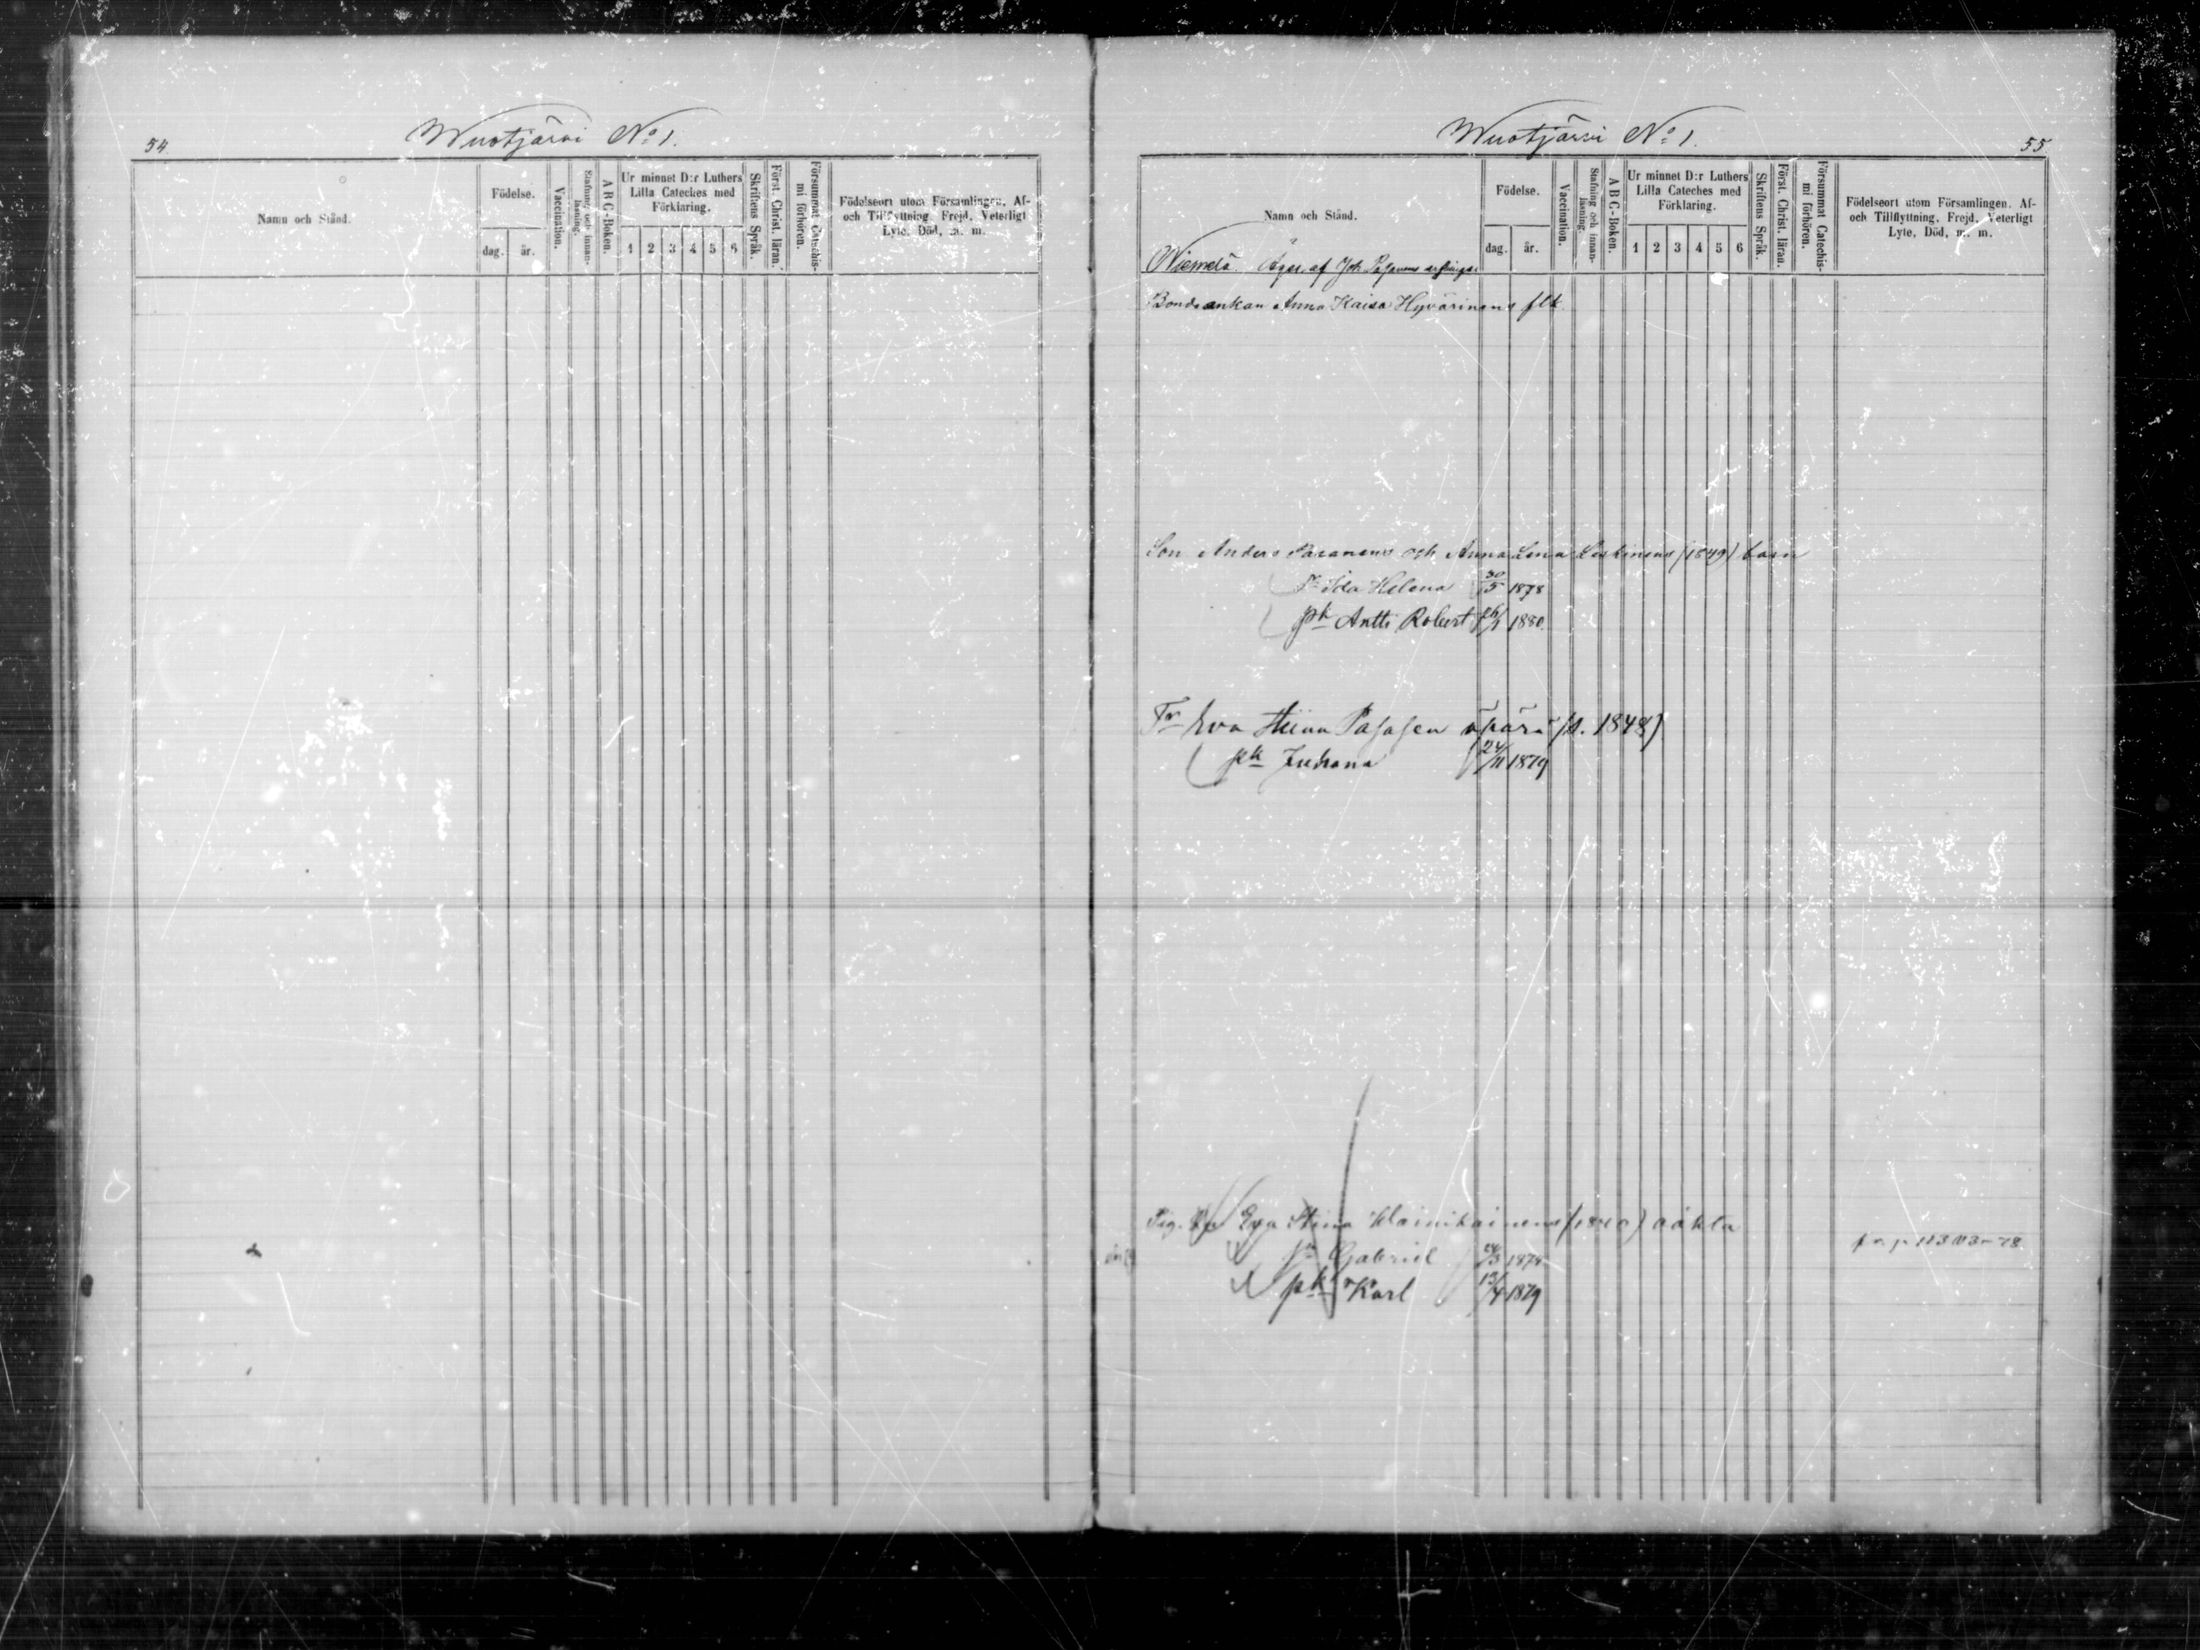 54
Wuotjärvi No 1.
Namn och Stånd.
Födelse.
dag.
år.
Vaccination.
Stafning och innanläsning.
ABC-Boken.
Ur minnet D:r Luthers
Lilla Cateches med
Förklaring.
1 2 3 4 5 6
Skriftens Språk.
Först. Christ. läran.
Försummat Catechismi förhören.
Födelseort utom Församlingen, Af-
och Tillflyttning, Frejd, Veterligt
Lyte, Död, m. m.
Wuotjärvi No 1.
55
Namn och Stånd.
Födelse.
dag.
år.
Vaccination.
Stafning och innanläsning.
ABC-Boken.
Ur minnet D:r Luthers
Lilla Cateches med
Förklaring.
1 2 3 4 5 6
Skriftens Språk.
Först. Christ. läran.
Försummat Catechismi förhören.
Födelseort utom Församlingen, Af-
och Tillflyttning, Frejd, Veterligt
Lyte, Död, m. m.
Niemelä. Äges af Joh. arfvingar
Bondeenkan Anna Kaisa Hyvärinens
Son Anders och Anna Lena Leskinens (1849) barn
Ida Helena 30/5 1878
pk Antti Robert 26/1 1880.
Tr Eva Stiina äpärä (s. 1848)
pk Juhana 24/11 1879
Pig. Eva Stina oäkta
Gabriel 24/3
pk Karl 13/4 1879